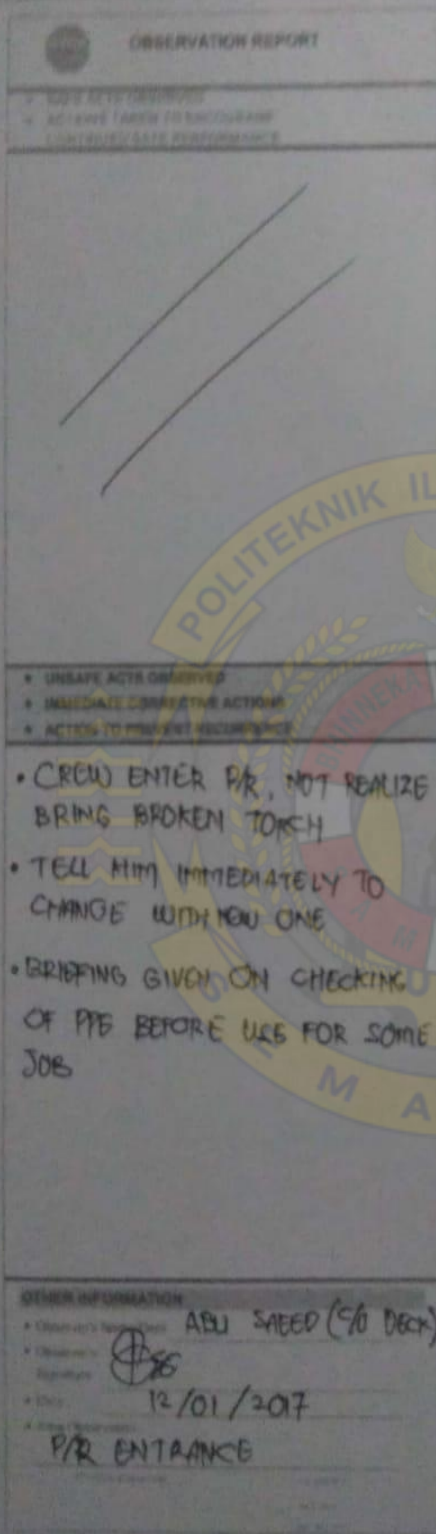 OBSERVATION REPORT
• SAFE ACTS OBSERVED
• ACTIONS TAKEN TO ENCOURAGE
CONTINUED SAFE PERFORMANCE
POLITEKNIK IL
• UNSAFE ACTS OBSERVED
• IMMEDIATE CORRECTIVE ACTIONS
• ACTION TO PREVENT RECURRENCE
• CREW ENTER P/R, NOT REALIZE
BRING BROKEN TORCH
• TELL HIM IMMEDIATELY TO
CHANGE WITH NEW ONE
• BRIEFING GIVEN ON CHECKING
OF PPE BEFORE USE FOR SOME
JOB
S E M A
OTHER INFORMATION
ABU SAEED (C/O DECK)
Signature
• Date
12/01/2017
P/R ENTRANCE